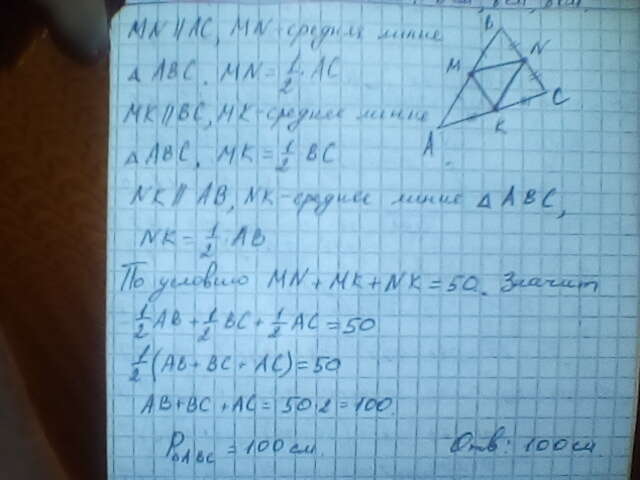 MN || AC, MN - средняя линия
△ ABC. MN = 1/2 · AC
MK || BC, MK - средняя линия
△ ABC, MK = 1/2 BC
NK || AB, NK - средняя линия △ ABC,
NK = 1/2 · AB
По условию MN + MK + NK = 50. Значит
1/2 AB + 1/2 BC + 1/2 AC = 50
1/2 (AB + BC + AC) = 50
AB + BC + AC = 50·2 = 100.
P△ABC = 100 см. Отв: 100 см.
B
N
M
C
K
A